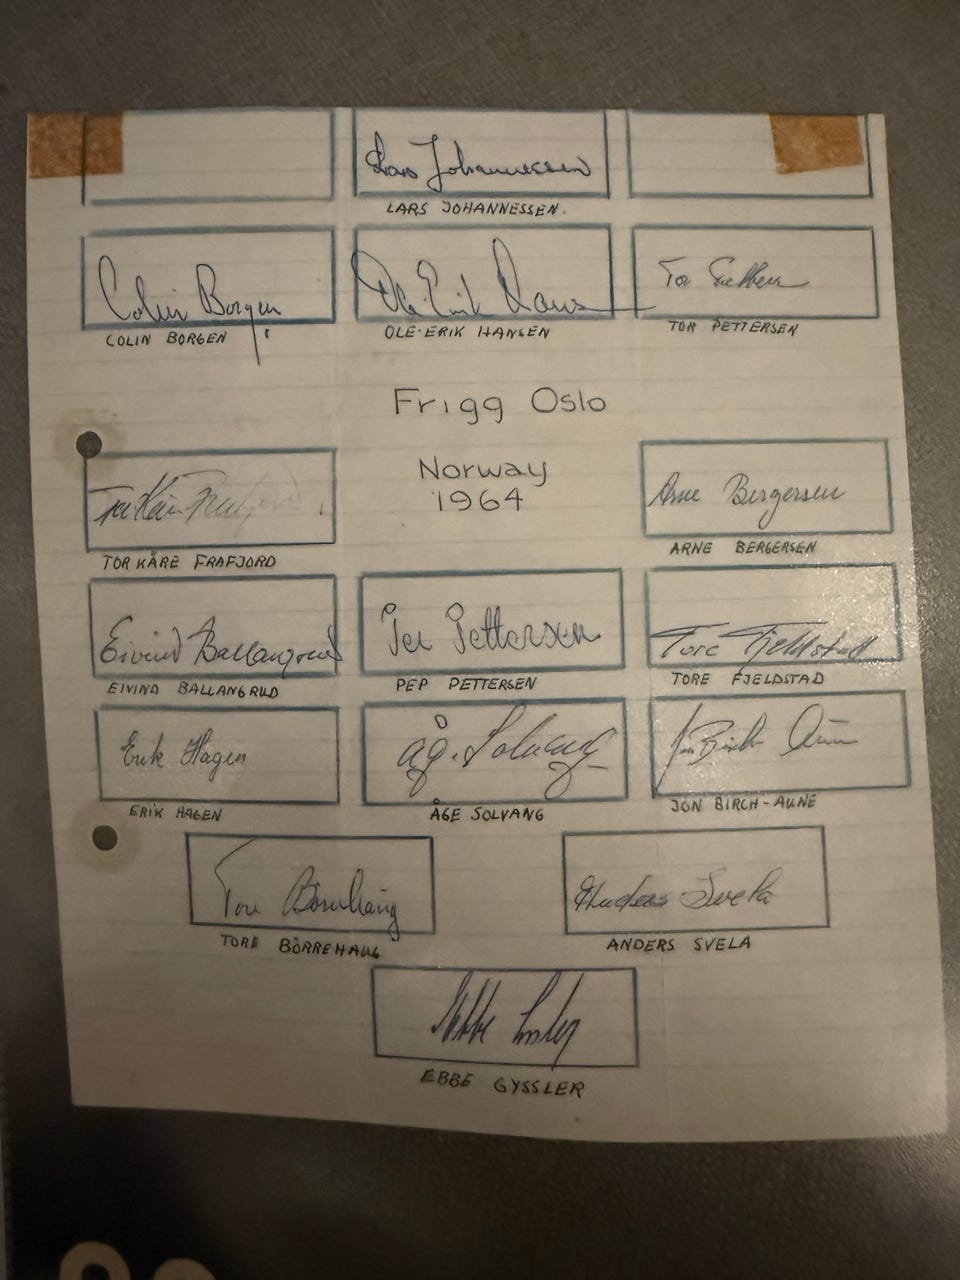 Lars Johannessen
LARS JOHANNESSEN.
Colin Borgen Ole-Erik Hans Tor Pettersen
COLIN BORGEN OLE-ERIK HANSEN TOR PETTERSEN
Frigg Oslo
Norway
1964
Tor Kåre Arne Bergersen
TOR KÅRE FRAFJORD ARNE BERGERSEN
Eivind Ballangrud Per Pettersen Tore Fjeldstad
EIVIND BALLANGRUD PEP PETTERSEN TORE FJELDSTAD
Erik Hagen Åg. Solvang Jon Birch-Aune
ERIK HAGEN ÅGE SOLVANG JON BIRCH-AUNE
Tore Börrehaug Anders Svela
TORE BÖRREHAUG ANDERS SVELA
Ebbe
EBBE GYSSLER